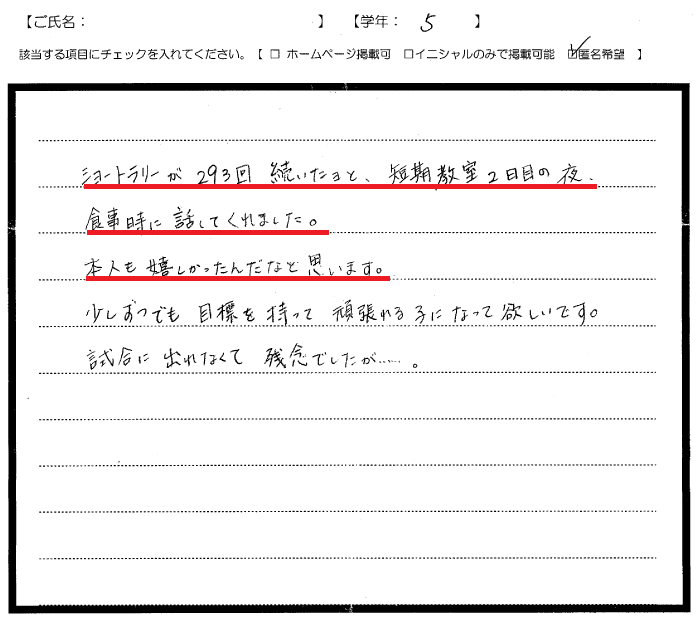 【ご氏名： 】 【学年： 5 】
該当する項目にチェックを入れてください。【 □ ホームページ掲載可 □イニシャルのみで掲載可能 ☑匿名希望 】
ショートラリーが 293回 続いたヨと、短期教室2日目の夜、
食事時に 話してくれました。
本人も 嬉しかったんだなと 思います。
少しずつでも 目標を 持って 頑張れる子になって欲しいです。
試合に 出れなくて 残念でしたが……。